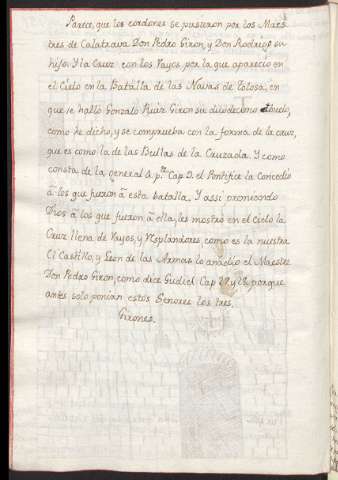 Parece, que los cordones se pusieron por los Maes
tres de Calatrava Don Pedro Giron, y Don Rodrigo su
hijo. Y la Cruz con los Rayos por la que aparecio en
el Cielo en la Batalla de las Navas de Tolosa, en
que se halló Gonzalo Ruiz Giron su duodecimo abuelo,
como he dicho, y se comprueba con la forma de la cruz,
que es como la de las Bullas de la Cruzada. Y como
consta de la general Cap 9. el Pontifice la concedio
à los que fueron à esta batalla. Y assi premiando
Dios à los que fueron à ella, les mostrò en el Cielo la
Cruz llena de Rayos, y Resplandores, como es la nuestra
El Castillo, y Leon de las Armas lo anadio el Maestre
Don Pedro Giron, como dice Gudiel Cap 27 y 28. porque
antes solo ponian estos Señores los tres
Girones.